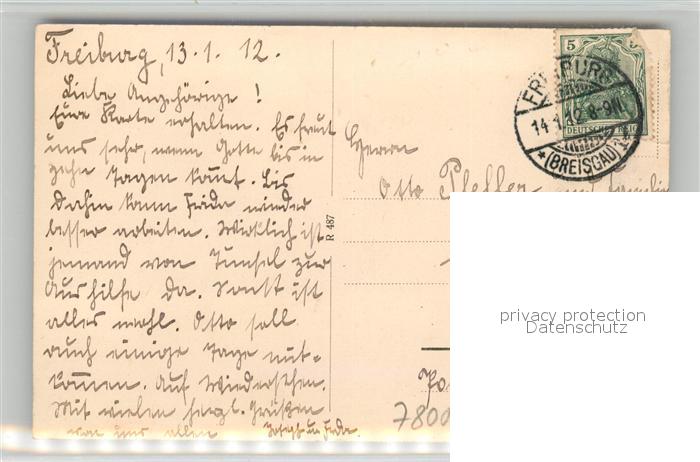 Freiburg, 13.1.12.
Liebe Angehörige!
Eure Karte erhalten. Es freut
uns sehr, wenn Gotte bis in
zehn Tagen kommt. Bis
dahin kann Frida wieder
besser arbeiten. Wirklich ist
jemand von Tunsel zur
Aushilfe da. Sonst ist
alles wohl. Otto soll
auch einige Tage mit-
kommen. Auf Wiedersehen.
Mit vielen herzl. Grüßen
von uns allen Joseph u Frida.
R 487
5
FREIBURG
14.1.12.8-9N.
DEUTSCHES REICH
*(BREISGAU)1*
Herrn
Otto Pfeffer und Familie
privacy protection
Datenschutz
7800